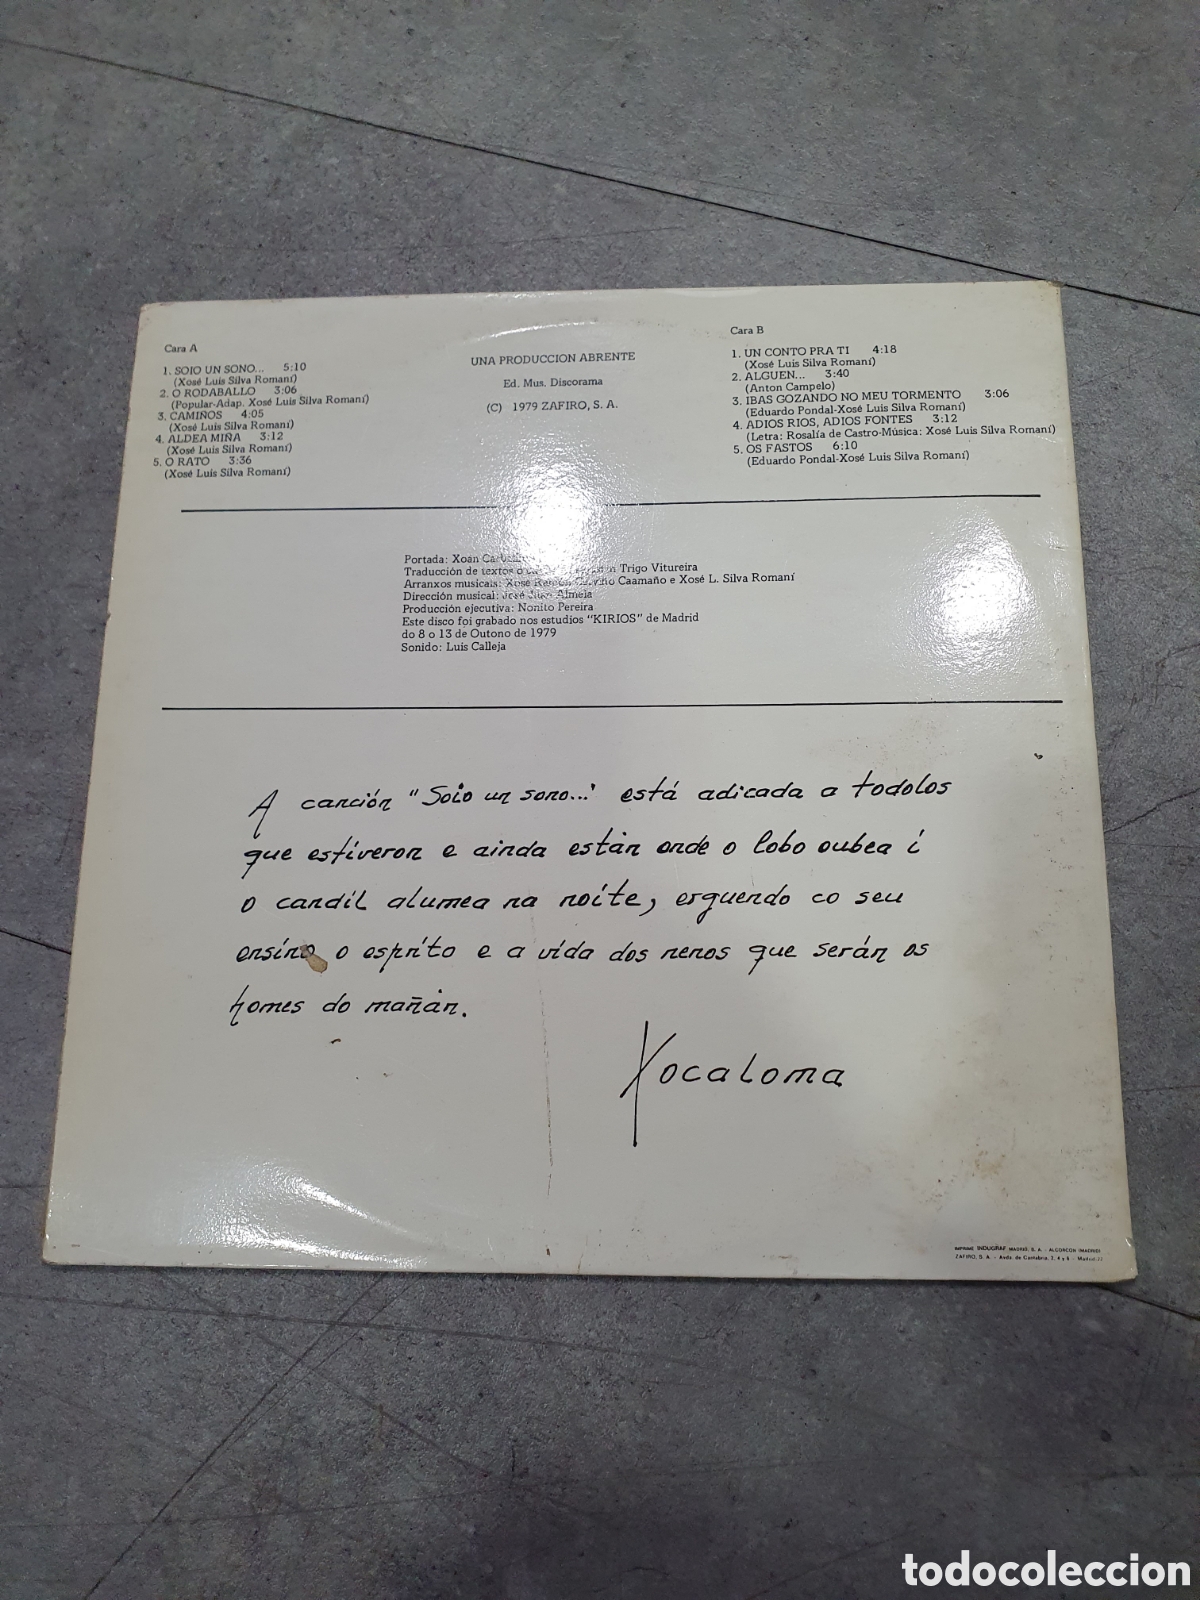 Cara A
1. SOIO UN SONO... 5:10
(Xosé Luis Silva Romaní)
2. O RODABALLO 3:06
(Popular-Adap. Xosé Luis Silva Romaní)
3. CAMIÑOS 4:05
(Xosé Luis Silva Romaní)
4. ALDEA MIÑA 3:12
(Xosé Luis Silva Romaní)
5. O RATO 3:36
(Xosé Luis Silva Romaní)
UNA PRODUCCION ABRENTE
Ed. Mus. Discorama
(C) 1979 ZAFIRO, S. A.
Cara B
1. UN CONTO PRA TI 4:18
(Xosé Luis Silva Romaní)
2. ALGUEN... 3:40
(Anton Campelo)
3. IBAS GOZANDO NO MEU TORMENTO 3:06
(Eduardo Pondal-Xosé Luis Silva Romaní)
4. ADIOS RIOS, ADIOS FONTES 3:12
(Letra: Rosalía de Castro-Música: Xosé Luis Silva Romaní)
5. OS FASTOS 6:10
(Eduardo Pondal-Xosé Luis Silva Romaní)
Portada: Xoan
Traducción de textos Trigo Vitureira
Arranxos musicais: Xosé Caamaño e Xosé L. Silva Romaní
Dirección musical: José Almeia
Producción ejecutiva: Nonito Pereira
Este disco foi grabado nos estudios "KIRIOS" de Madrid
do 8 o 13 de Outono de 1979
Sonido: Luis Calleja
A canción "Soio un sono..." está adicada a todolos
que estiveron e ainda están onde o lobo oubea i
o candil alumea na noite, erguendo co seu
ensino o esprito e a vida dos nenos que serán os
homes do mañán.
Xocaloma
IMPRIME INDUGRAF MADRID, S. A. - ALCORCON (MADRID)
ZAFIRO, S. A. - Avda. de Cantabria, 2, 4 y 6 - Madrid-22
todocoleccion